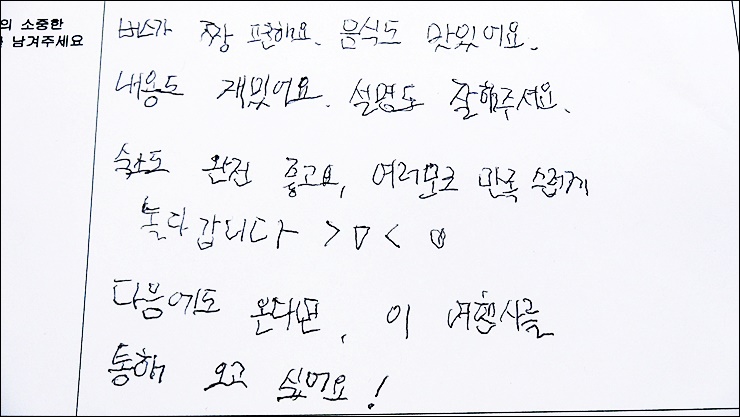 의 소중한
남겨주세요
버스가 짱 편해요. 음식도 맛있어요.
내용도 재밌어요. 설명도 잘해주셔요.
숙소도 완전 좋고요, 여러모로 만족스럽게
놀다 갑니다 >ㅁ< ㅎ
다음에도 온다면, 이 여행사를
통해 오고 싶어요!